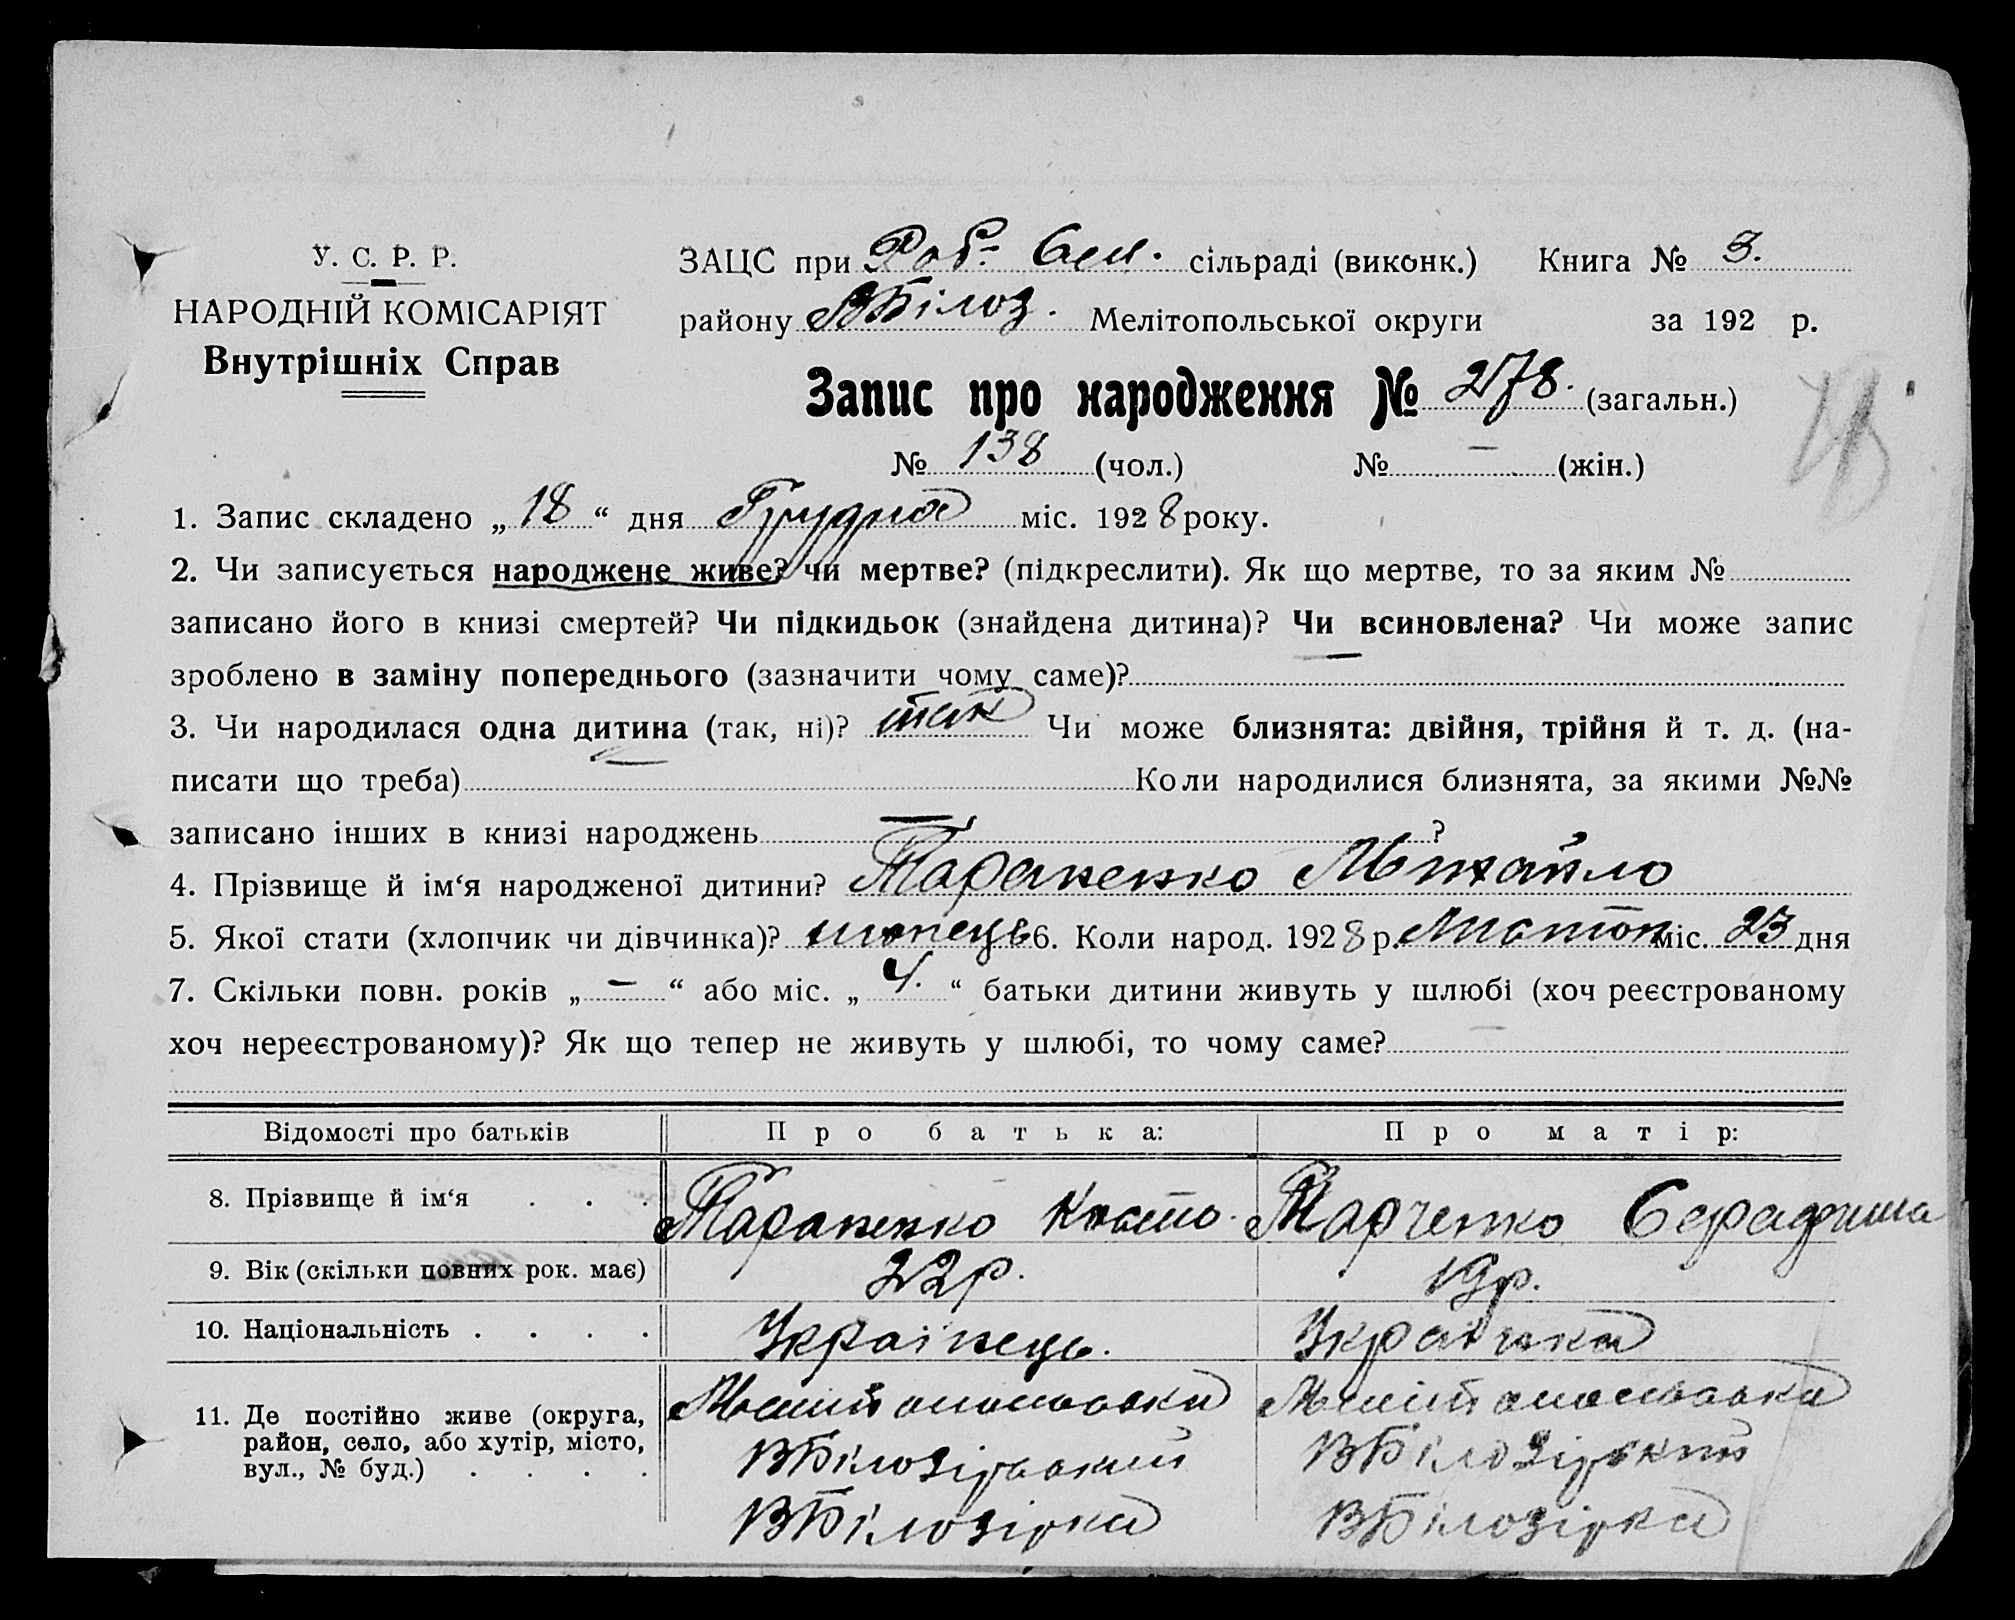 У. С. Р. Р.
НАРОДНІЙ КОМІСАРІЯТ
Внутрішніх Справ
ЗАЦС при Роб. Сел. сільраді (виконк.) Книга № 3.
району ВБілоз. Мелітопольської округи за 192 р.
Запис про народження № 278. (загальн.)
№ 138 (чол.) № — (жін.)
1. Запис складено „ 18 “ дня Грудня міс. 1928 року.
2. Чи записується народжене живе? чи мертве? (підкреслити). Як що мертве, то за яким №
записано його в книзі смертей? Чи підкидьок (знайдена дитина)? Чи всиновлена? Чи може запис
зроблено в заміну попереднього (зазначити чому саме)? —
3. Чи народилася одна дитина (так, ні)? так Чи може близнята: двійня, трійня й т. д. (на-
писати що треба) — Коли народилися близнята, за якими №№
записано інших в книзі народжень — ?
4. Прізвище й ім‘я народженої дитини? Тараненко Михайло
5. Якої стати (хлопчик чи дівчинка)? хлопець 6. Коли народ. 1928 р. Листоп міс. 23 дня
7. Скільки повн. років „ — “ або міс. „ 4. “ батьки дитини живуть у шлюбі (хоч реєстрованому
хоч нереєстрованому)? Як що тепер не живуть у шлюбі, то чому саме? —
Відомості про батьків Про батька: Про матір:
8. Прізвище й ім‘я . . . Тараненко Марченко Серафима
9. Вік (скільки повних рок. має) 22р. 19р.
10. Національність . . . . Українець. Українка
11. Де постійно живе (округа,
район, село, або хутір, місто,
вул., № буд.) . . . .
Мелітопольська Мелітопольська
ВБілозірський ВБілозірський
ВБілозірка ВБілозірка